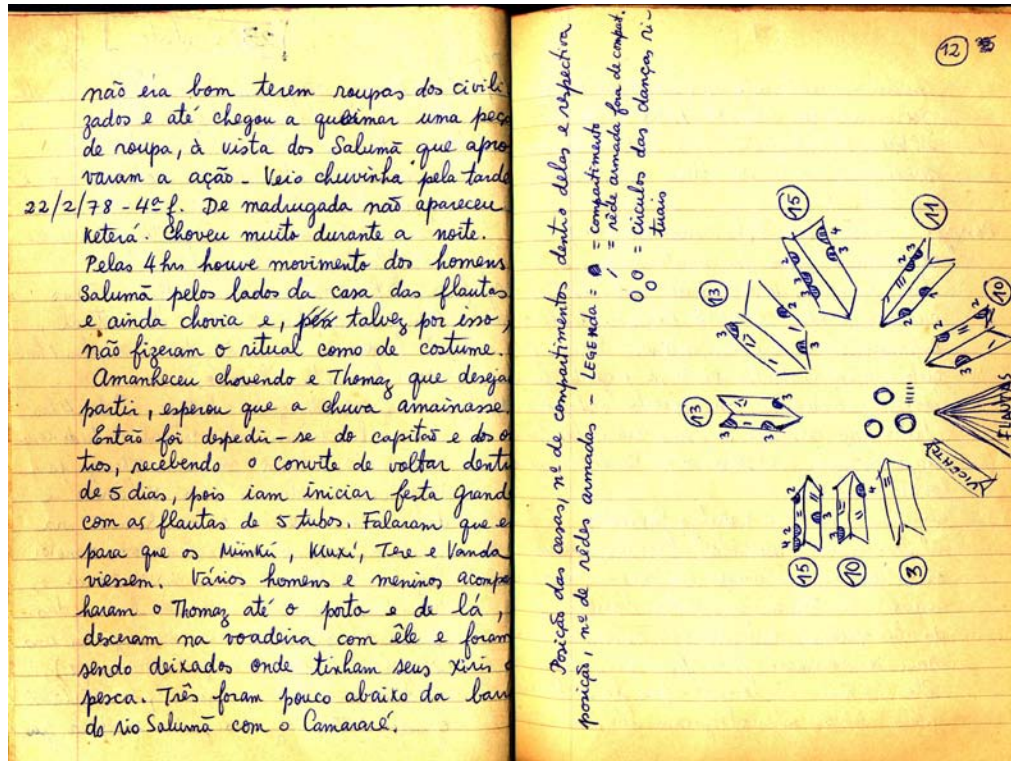 não éra bom terem roupas dos civili
zados e até chegou a queimar uma peça
de roupa, à vista dos Salumã que apro
varam a ação - Veio chuvinha pela tarde
22/2/78 - 4ª f. De madrugada não apareceu
Keterá. Choveu muito durante a noite.
Pelas 4 hrs houve movimento dos homens
Salumã pelos lados da casa das flautas
e ainda chovia e, talvez por isso,
não fizeram o ritual como de costume.
Amanheceu chovendo e Thomaz que deseja
partir, esperou que a chuva amainasse.
Então foi despedir-se do capitão e dos o
tros, recebendo o convite de voltar dent
de 5 dias, pois iam iniciar festa grand
com as flautas de 5 tubos. Falaram que e
para que os Münkü, Kuxí, Tere e Vanda
viessem. Vários homens e meninos acompa
haram o Thomaz até o porto e de lá,
desceram na voadeira com êle e foram
sendo deixados onde tinham seus xiris
pesca. Três foram pouco abaixo da barr
do rio Salumã com o Camararé.
12
Posição das casas, nº de compartimentos dentro delas e respectiva
posição, nº de rêdes armadas - LEGENDA = = compartimento
= rêde armada fora de compat.
= círculos das danças ri-
tuais
15
11
13
10
13
FLAUTAS
VICENTE
15
10
3